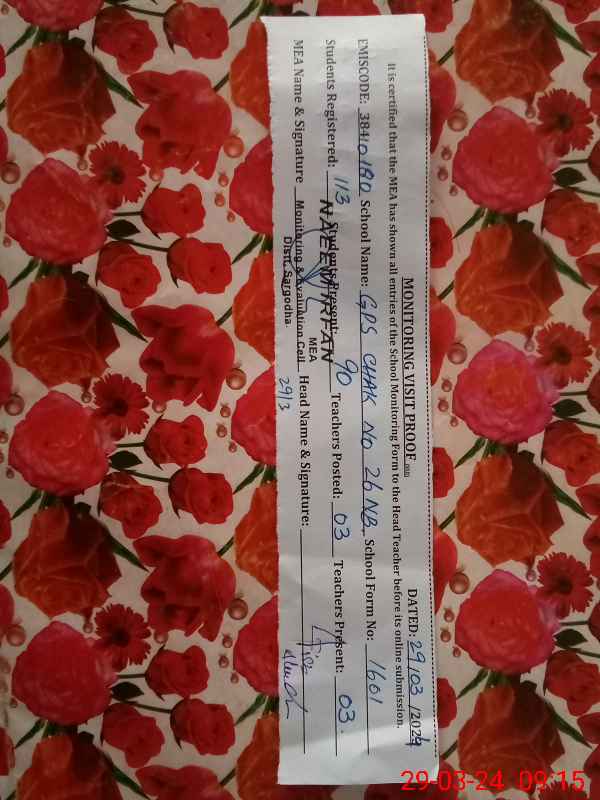 MONITORING VISIT PROOF DATED: 29/03/2024
It is certified that the MEA has shown all entries of the School Monitoring Form to the Head Teacher before its online submission.
EMISCODE: 38410180 School Name: GPS CHAK NO 26 NB. School Form No: 1601
Students Registered: 113 Students Present: 90 Teachers Posted: 03 Teachers Present: 03.
NAEEM IRFAN
MEA
MEA Name & Signature Head Name & Signature:
Monitoring & Evaluation Cell
Distt. Sargodha.
29/3
29-03-24 09:15